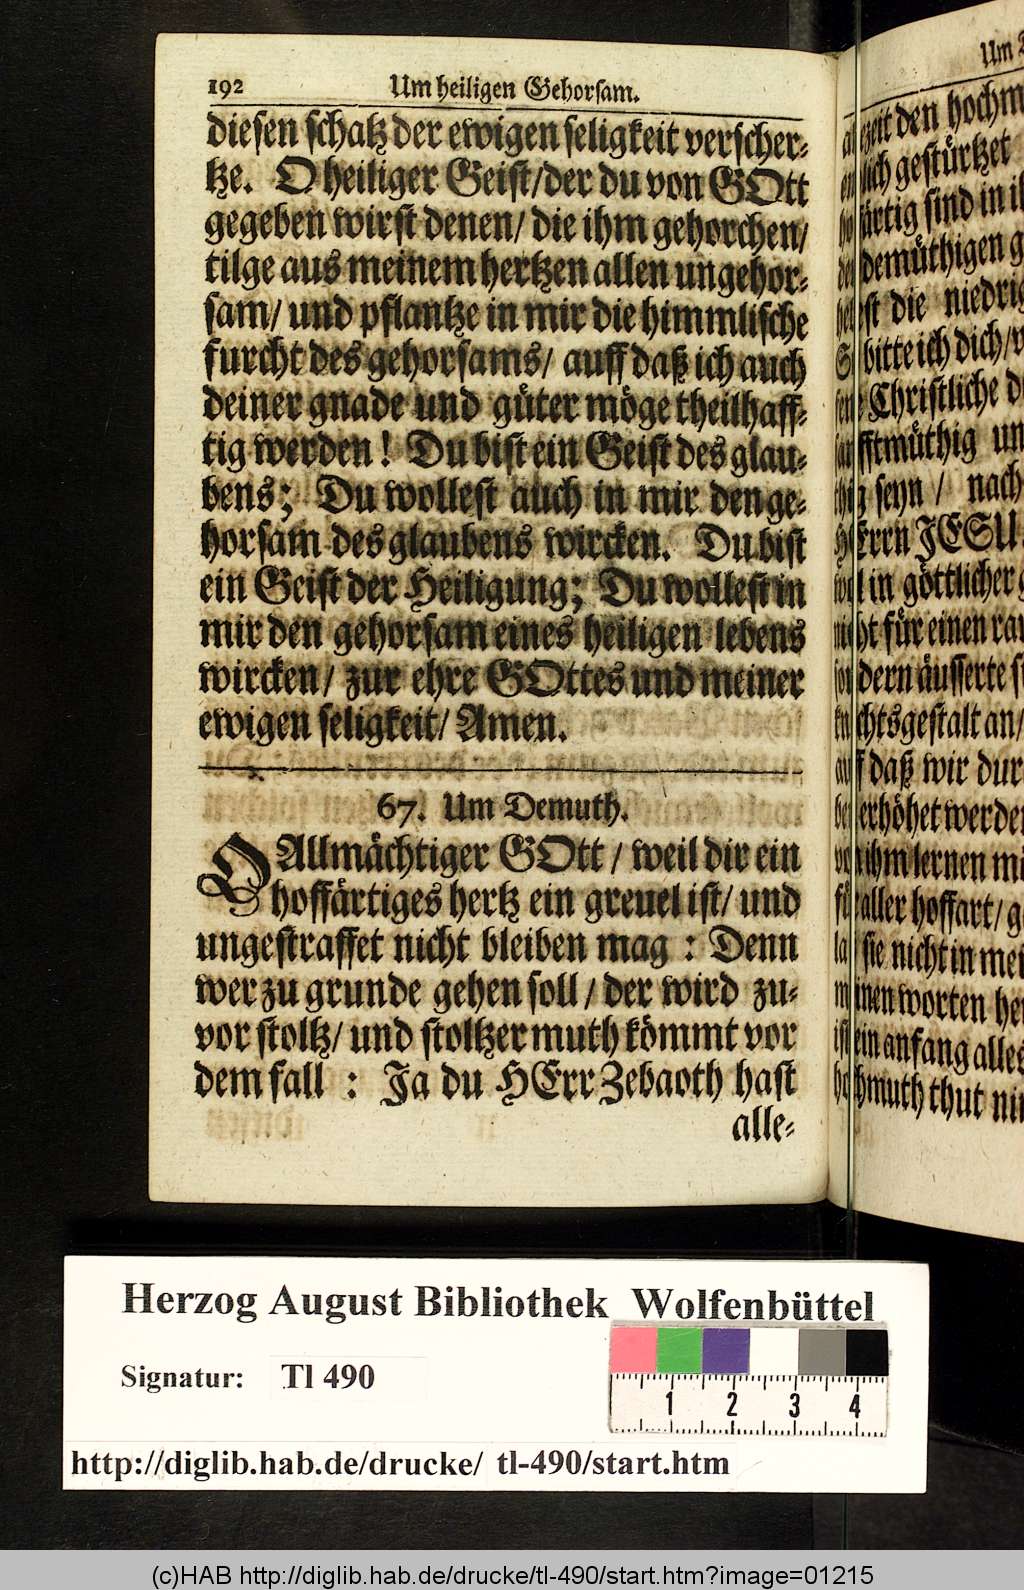 192 Um heiligen Gehorsam.
diesen schatz der ewigen seligkeit verscher-
tze. O heiliger Geist/ der du von GOtt
gegeben wirst denen/ die ihm gehorchen/
tilge aus meinem hertzen allen ungehor-
sam/ und pflantze in mir die himmlische
furcht des gehorsams/ auff daß ich auch
deiner gnade und güter möge theilhaff-
tig werden! Du bist ein Geist des glau-
bens; Du wollest auch in mir den ge-
horsam des glaubens wircken. Du bist
ein Geist der Heiligung; Du wollest in
mir den gehorsam eines heiligen lebens
wircken/ zur ehre GOttes und meiner
ewigen seligkeit/ Amen.
67. Um Demuth.
O Allmächtiger GOtt/ weil dir ein
hoffärtiges hertz ein greuel ist/ und
ungestraffet nicht bleiben mag: Denn
wer zu grunde gehen soll/ der wird zu-
vor stoltz/ und stoltzer muth kömmt vor
dem fall: Ja du HErr Zebaoth hast
alle-
Um
zeit den hochm
lich gestürtzet
ärtig sind in i
demüthigen g
st die niedrig
bitte ich dich/
Christliche d
fftmüthig un
seyn/ nach
Errn JESU
in göttlicher
ht für einen rau
dern äusserte s
chtsgestalt an/
daß wir dur
erhöhet werde
ihm lernen
aller hoffart/ g
sie nicht in mei
inen worten her
ein anfang alles
hmuth thut ni
Herzog August Bibliothek Wolfenbüttel
Signatur: Tl 490
1 2 3 4
http://diglib.hab.de/drucke/ tl-490/start.htm
(c)HAB http://diglib.hab.de/drucke/tl-490/start.htm?image=01215